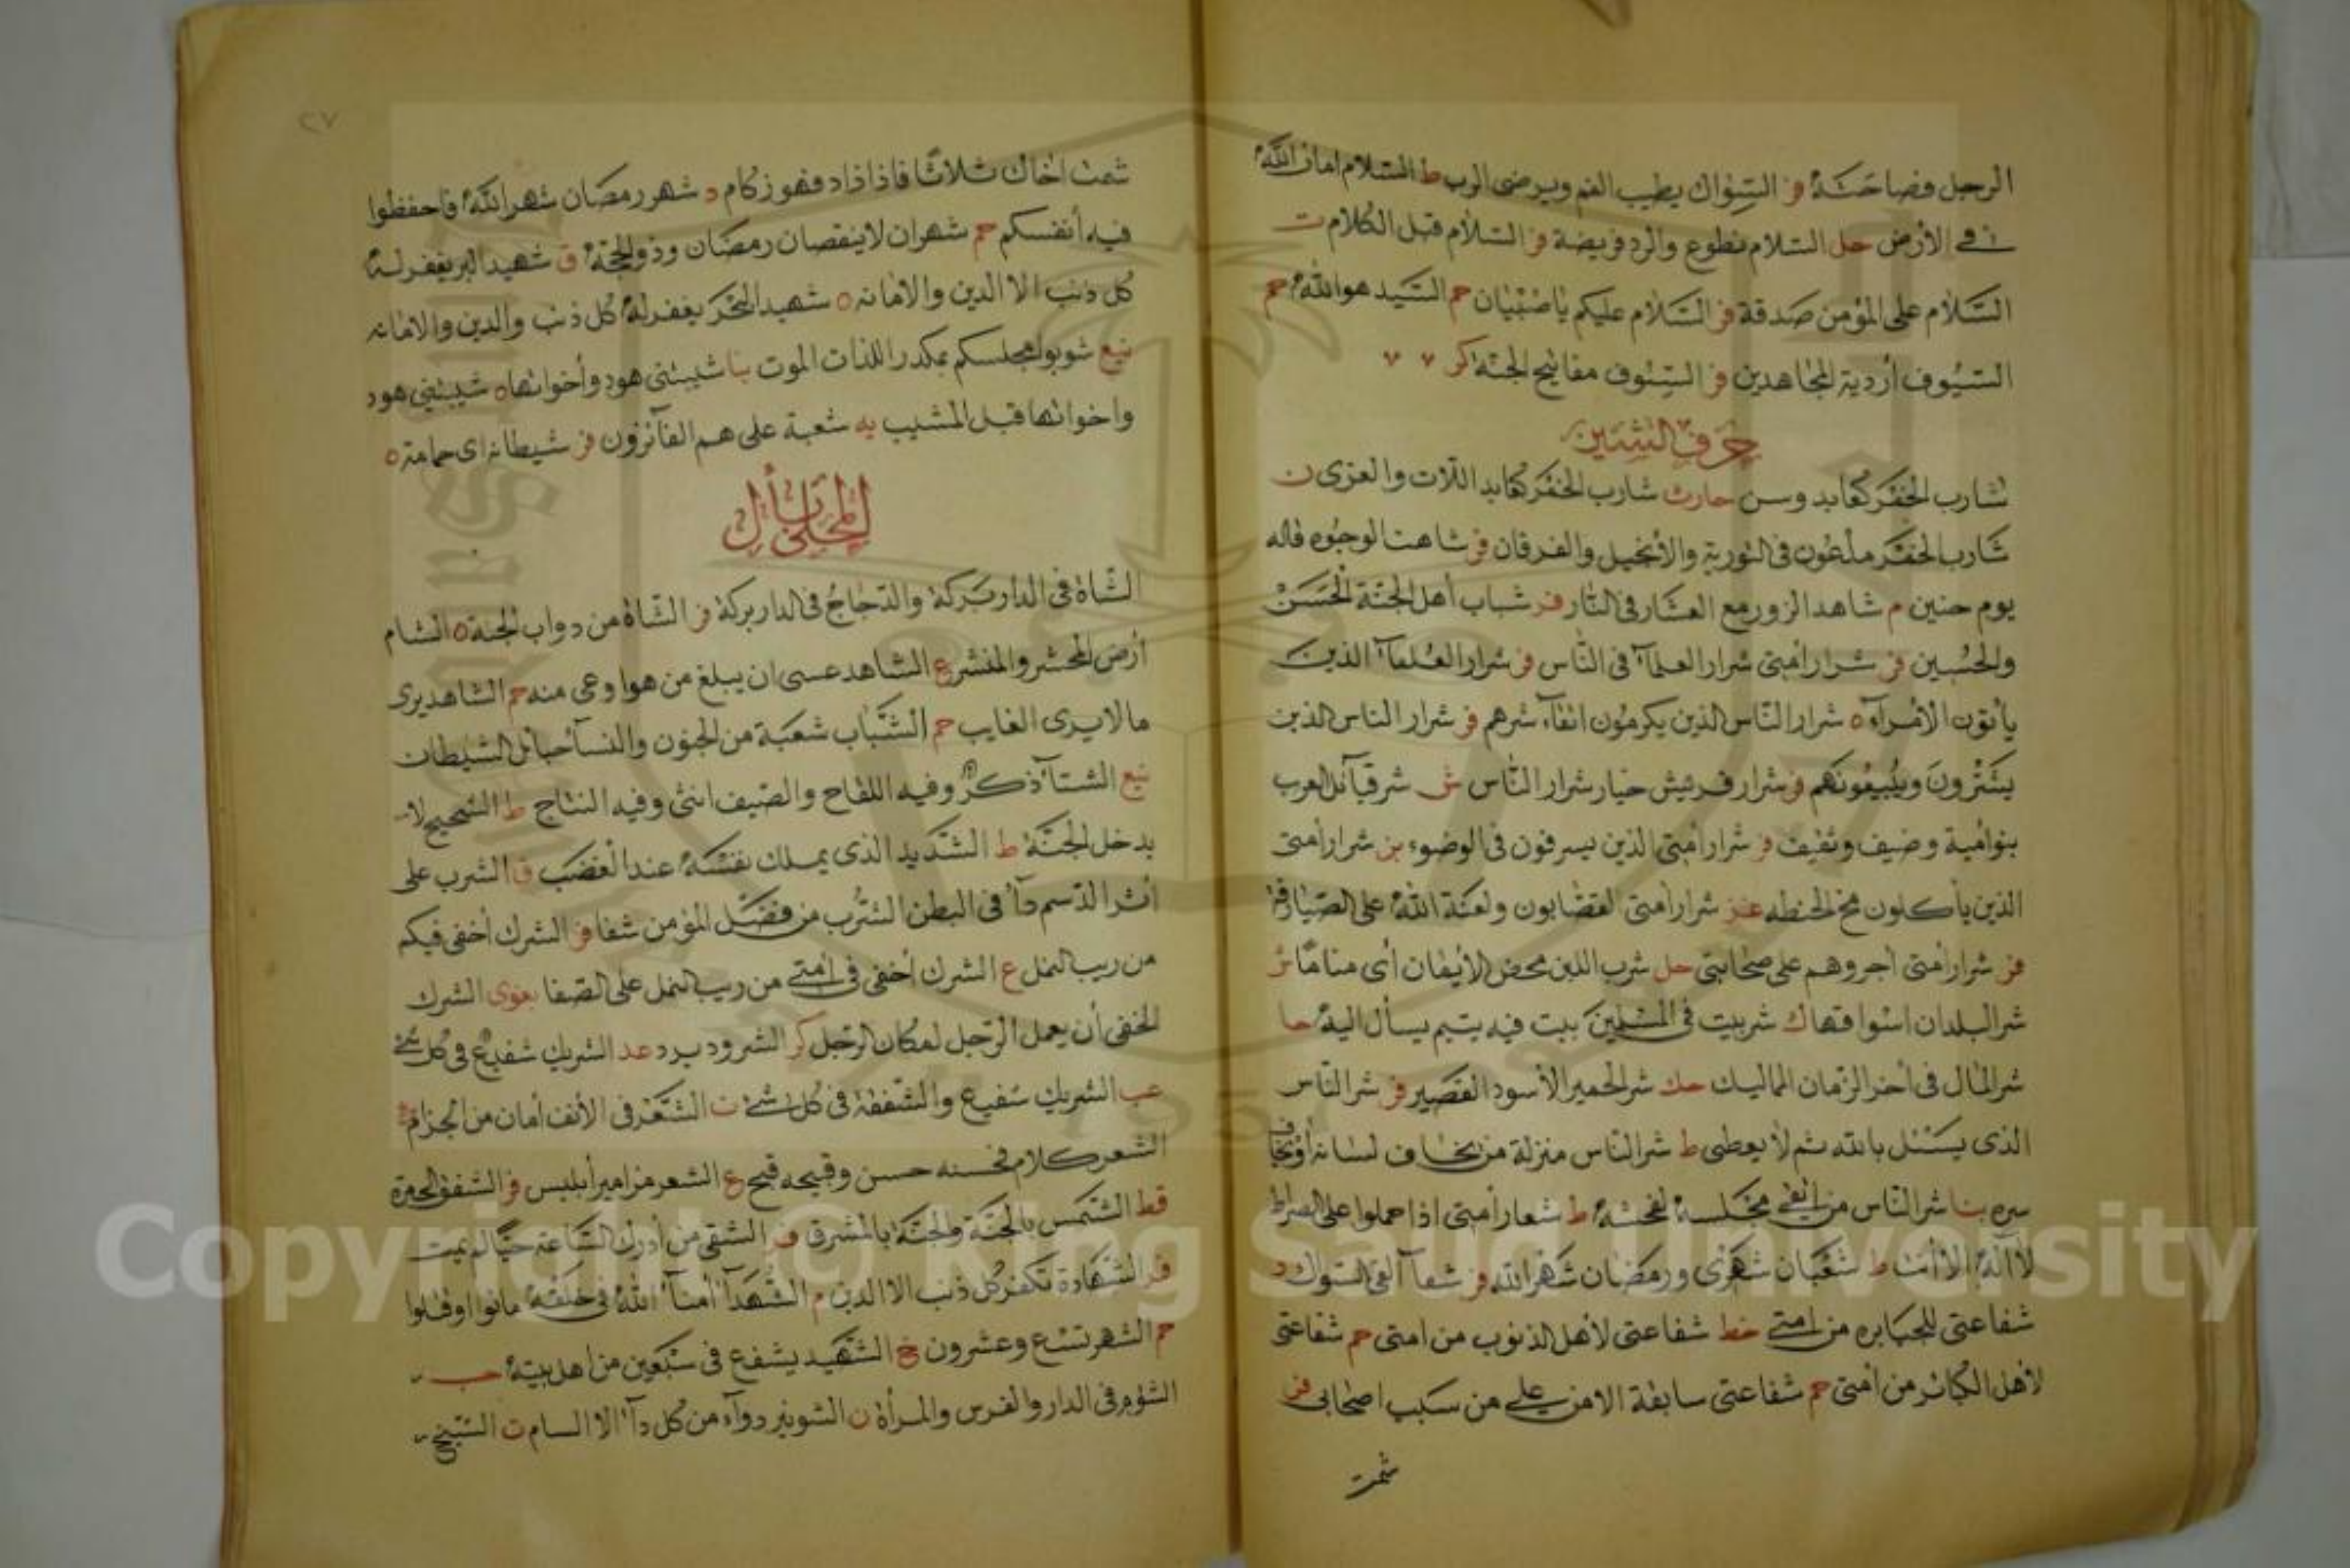 الرجل فصاحة فر السواك يطيب الفم ويرضى الرب ط السلام امان الله
في الأرض حل السلام تطوع والرد فريضة فر السلام قبل الكلام ت
السلام على المؤمن صدقة فر السلام عليكم ياصبيان حم السيد هو الله حم
السيوف أردية المجاهدين فر السيوف مفاتيح الجنة كر
حرف الشين
شارب الخمر كعابد وسن حارث شارب الخمر كعابد اللات والعزى ن
شارب الخمر ملعون في التورية والأنجيل والفرقان فر شاهت الوجوه قاله
يوم حنين م شاهد الزور مع العشار في النار فر شباب أهل الجنة الحسن
والحسين فر شرار أمتى شرار العلمآء في الناس فر شرار العلمآء الذين
يأتون الأمرآء ه شرار الناس الذين يكرمون اتقآء شرهم فر شرار الناس الذين
يشترون ويبيعونهم فر شرار قريش خيار شرار الناس ش شر قبآئل العرب
بنو أمية وضيف وثقيف فر شرار أمتى الذين يسرفون في الوضوء بن شرار امتى
الذين يأكلون مخ الحنطه شرار أمتى القصابون ولعنة الله على
فر شرار أمتى اجروهم على صحابتى حل شرب اللبن محض الأيمان أى مناما
شر البلدان اسواقها ك شر بيت في المسلمين بيت فيه يتيم يسأ اليه حا
شر المال في أخر الزمان المماليك حك شر الحمير الأسود القصير فر شر الناس
الذى يسئل بالله ثم لا يعطى ط شر الناس منزلة من يخاف لسانه أويخاف
سره بنا شر الناس من اتقى مجلسه لفحشه ط شعار أمتى اذا حملوا على الصراط
لا اله الا أنت ط شعبان شهرى ورمضان شهر الله فر شفآء العى السوال د
شفاعتى للجبابره من امتى خط شفاعتى لأهل الذنوب من امتى حم شفاعتى
لأهل الكبائر من أمتى حم شفاعتى سابقة الا من على من سب اصحابى فر
شمت
٢٧
شمت اخاك ثلاثا فاذا زاد فهو زكام د شهر رمضان شهر الله فاحفظوا
فيه أنفسكم حم شهران لا ينقصان رمضان وذو الحجة ق شهيد البر يغفر له
كل ذنب الا الدين والامانه ه شهيد البحر يغفر له كل ذنب والدين والامانه
نيع شوبوا مجلسكم بمكدر اللذات الموت بنا شيبتنى هود وأخواتها ه شيبتنى هود
واخواتها قبل المشيب يه شعبة على هم الفآئزون فر شيطانه اى حمامة ه
المحلى بأل
الشاة في الدار بركة والدجاج في الدار بركة فر الشاة من دواب الجنة ه الشام
أرض المحشر والمنشر ع الشاهد عسى ان يبلغ من هو اوعى منه حم الشاهد يرى
ما لا يرى الغايب حم الشباب شعبة من الجنون والنسآء حبائل الشيطان
نيع الشتآء ذكر وفيه اللقاح والصيف انثى وفيه النتاج ط الشحيح لا
يدخل الجنة ط الشديد الذى يملك نفسه عند الغضب ق الشرب على
أثر الدسم دآء في البطن الشرب من فضل المؤمن شفا فر الشرك أخفى فيكم
من ربيب النمل ع الشرك أخفى في امتى من دبيب النمل على الصفا الشرك
الخفى أن يعمل الرجل لمكان الرجل كر الشرود يرد عد الشريك شفيع في كل شئ
عب الشريك شفيع والشفعة في كل شئ ت الشعر في الأنف أمان من الجزام
الشعر كلام فحسنه حسن وقبيحه قبيح ع الشعر مزامير أبليس فر الشفق الحمرة
قط الشمس بالجنة والجنة بالمشرق فر الشقى من أدرك الساعة حيا لم يمت
فر الشهادة تكفر كل ذنب الا الدين م الشهدآء امنآء الله في خلقه ماتوا اوقتلوا
حم الشهر تسع وعشرون خ الشهيد يشفع في سبعين من اهل بيته حب
الشؤم في الدار والفرس والمرأة ن الشونيز دوآء من كل دآء الا السام ت الشيخ
Copyright © King Saud University